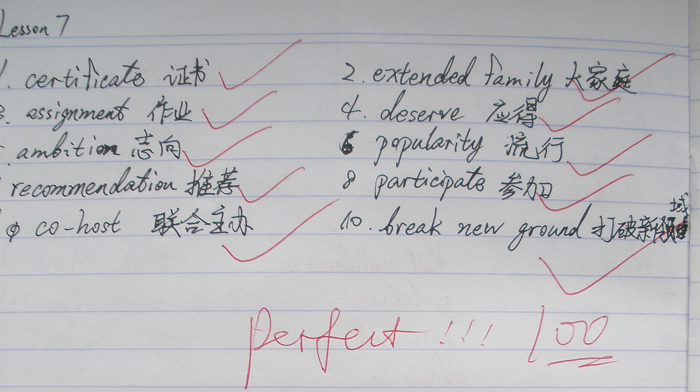 Lesson 7
1. certificate 证书 2. extended family 大家庭
3. assignment 作业 4. deserve 应得
5. ambition 志向 6 popularity 流行
recommendation 推荐 8 participate 参加
9 co-host 联合主办 10. break new ground 打破新领域
perfect!!! 100